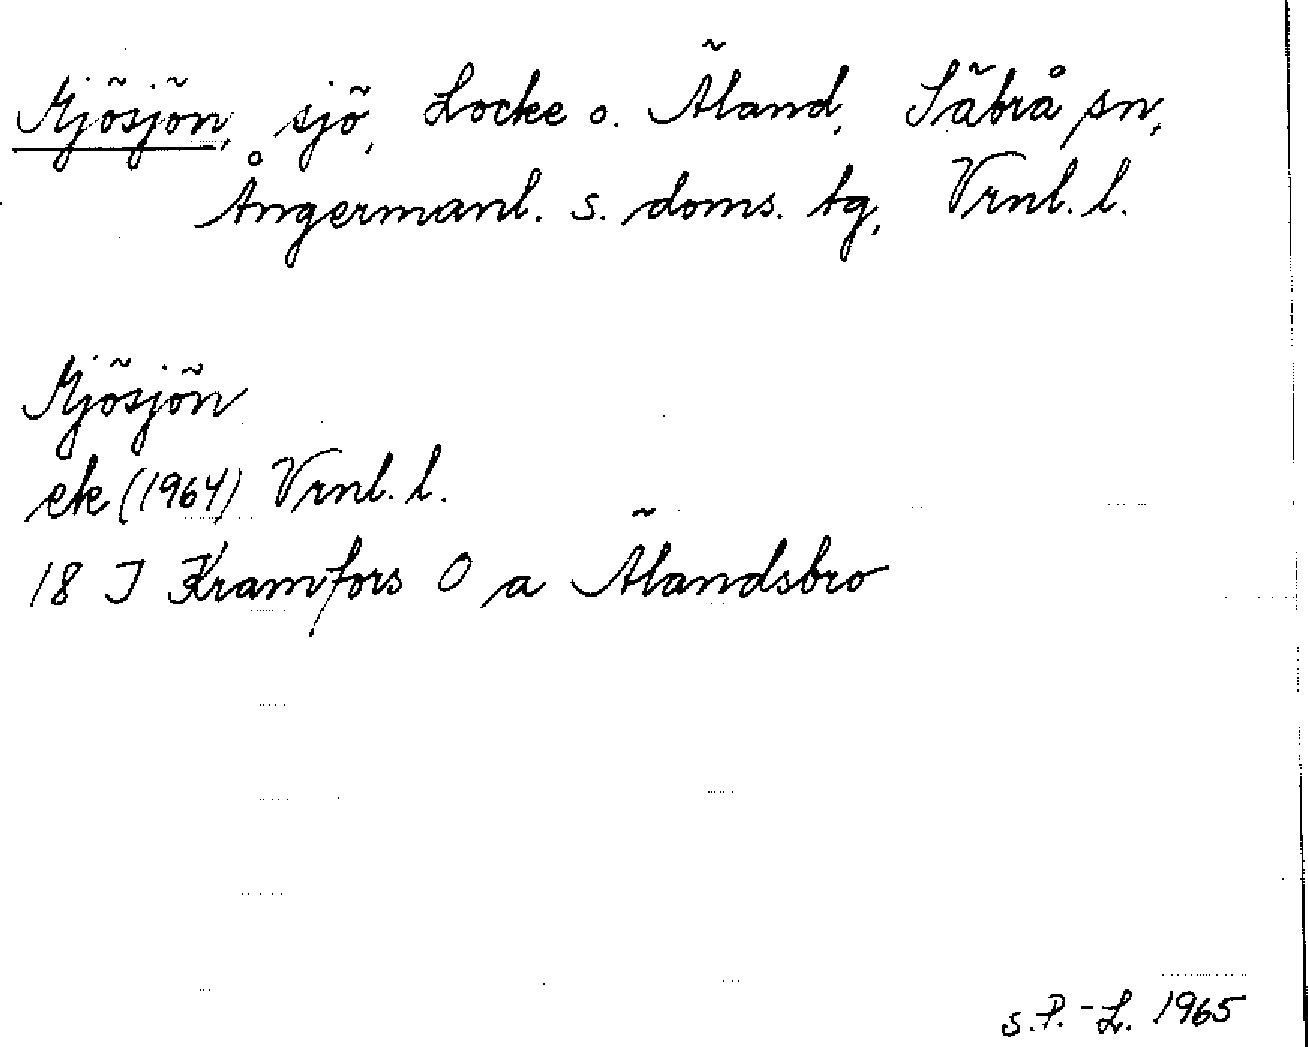 Mjösjön, sjö, Locke o. Äland, Säbrå sn,
Ångermanl. s. doms. tg, Vrnl. l.
Mjösjön
ek (1964) Vrnl. l.
18 I Kramfors O a Älandsbro
s. P.-L. 1965